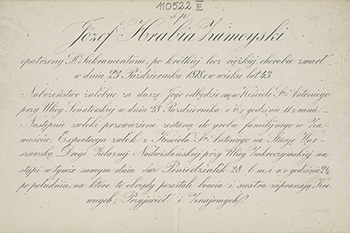 110522
III
ś†p
Józef Hrabia Zamoyski
opatrzony Śś. Sakramentami, po krótkiej lecz ciężkiej chorobie zmarł
w dniu 23 Października 1878 r. w wieku lat 43.
Nabożeństwo żałobne za duszę Jego odbędzie się w Kościele Śgo Antoniego
przy Ulicy Senatorskiej w dniu 28 Października r. b. o godzinie 11 z rana.—
Następnie zwłoki przewiezione zostaną do grobu familijnego w
Exportacya zwłok z Kościoła Śgo Antoniego na Stacyę War-
szawską Drogi Żelaznej Nadwiślańskiej przy Ulicy Zakroczymskiej na-
stąpi w tymże samym dniu Poniedziałek 28 b. m. i r. o godzinie
po południu, na które to obrzędy pozostali bracia i siostra zapraszają Kre-
wnych, Przyjaciół i Znajomych.